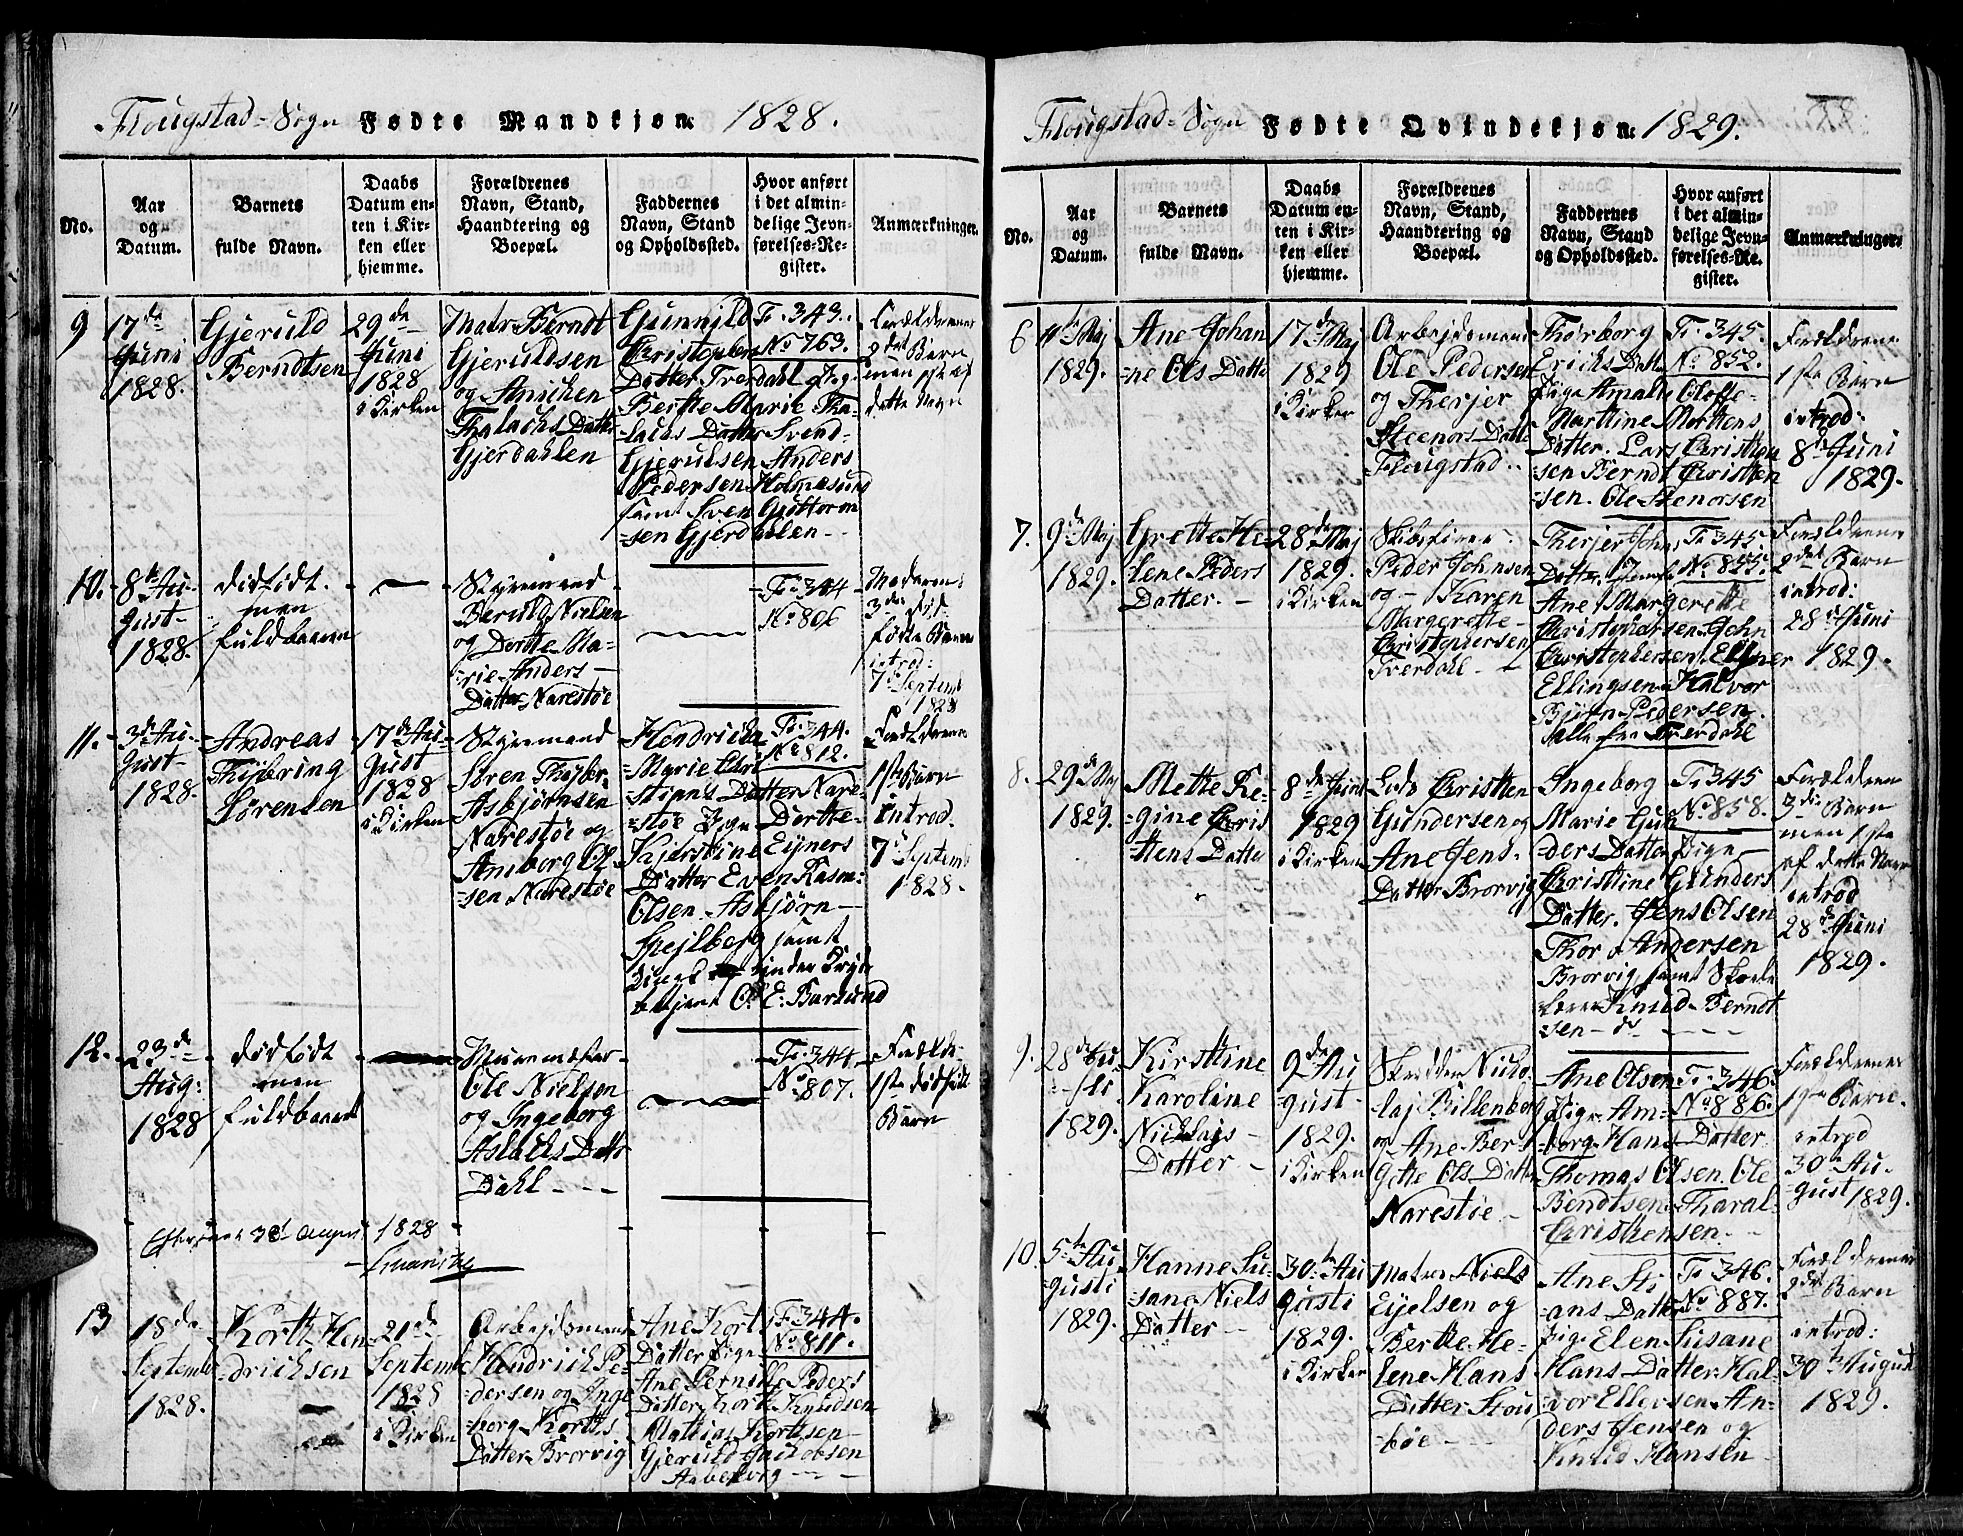 Flougstad-Sogn Fødte Mandkjøn 1828.
No.
Aar
og
Datum.
Barnets
fulde Navn.
Daabs
Datum en-
ten i Kir-
ken eller
hjemme.
Forældrenes
Navn, Stand,
Haandtering og
Boepæl.
Faddernes
Navn, Stand
og Opholdssted.
Hvor anført
i det almin-
delige Jevn-
førelses-Re-
gister.
Anmærkninger.
9
17de
Juni
1828.
Gjeruld
Berndtsen
29de
Juni
1828
i Kirken
Matr. Berndt
Gjeruldsen
og Anichen
Thalachs Datter
Gjerdahlen
Gunnild
Christophers
Datter Tverdahl
Berthe Marie Tha-
lachs Datter Svend
Gjerulsen Anders
Pedersen Holmesund
samt Sven Guttorm
-sen Gjerdahlen
Fr. 343.
No 763.
Forældrenes
2det Barn
men 1ste af
dette Navn
10.
8de Au-
gust
1828.
dødfødt
men
fuldbaaren
Styrmand
Beruld Nielsen
og Dorthe Ma-
rie Anders
Datter Narestøe
Fr. 344
No 806
Moderens
3die død-
fødte Barn
introd:
7de Septemb
1828
11.
3de Au-
gust
1828.
Andreas
Thybring
Sørensen
17de Au-
gust
1828
i Kirken
Styrmand
Søren Thybr.
Asbjørnsen
Narestøe og
Amborg Ol-
sen Narestøe
Hendricka
Marie Chri
-stians Datter Nare-
støe Pige Dorthe
Kjerstine Eyners
Datter Even Rasm-
Olsen. Asbjørn
Spejlberg samt
betjent O. E. Barlund
Fr. 344.
No 812.
Forældrenes
1ste Barn
introd.
7de Septemb
1828.
12.
23de
Aug:
1828
dødfødt
men
fuldbaaren
Muurmester
Ole Nielsen
og Ingeborg
Aslachs Dattr
Dahl
Fr. 344.
No 807.
Forældr-
1ste dødfødt
Barn
Efterseet 3de August 1828
13
18de
September
1828.
Korth Hen
drichsen
21de
Septembr
1828
i Kirken
Arbejdsmand
Hendrich Pe-
dersen og Inge
borg Korths
Datter Brorvig
Ane Kort
Datter Pige
Ane Pernille Peders
Datter Korth Knudsen
Mathias Korthsen
Gjeruld Jacobsen
Aabelvig
Fr. 344.
No 811.
Flougstad-Sogn Fødte Qvindekjøn 1829.
No.
Aar
og
Datum.
Barnets
fulde Navn.
Daabs
Datum en-
ten i Kir-
ken eller
hjemme.
Forældrenes
Navn, Stand,
Haandtering og
Boepæl.
Faddernes
Navn, Stand
og Opholdssted.
Hvor anført
i det almin-
delige Jevn-
førelses-Re-
gister.
Anmærkninger.
6
4de Maj
1829.
Ane Johan
ne Ols Datter
17de Maj
1829
i Kirken
Arbejdsmand
Ole Pedersen
og Therjer
Steenors Datt-
Flougstad.
Thorborg
Erichs Datt
Pige Amalie Oloffe-
Marthine Mortens
Datter. Lars Christen
-sen Berndt Christen
-sen. Ole Stenorsen
Fr. 345.
No 852.
Forældrene
1ste Barn
introd:
8de Juni
1829.
7.
9de Maj
1829.
Grethe He-
lene Peders
Datter.
28de Maj
1829.
i Kirken
Skibsfører
Peder Johnsen
og Karen
Margrethe
Christophersen
Tverdahl.
Therjer Johns
Datter.
Ane Margrethe
Christophersen. John
Christophersen. Ejner
Ellingsen. Halvor
Bjørn Pedersen.
Alle fra Tverdahl
Fr 345
No 855.
Forældrene
2det Barn
introd:
28de Juni
1829.
8.
29de Maj
1829.
Mette Re-
gine Chris
-tens Datter
8de Juni
1829
i Kirken
Lods Christen
Gundersen og
Ane Jens.
Datter Brorvig
Ingeborg
Marie Gun
ders Datter Pige
Christine Gunders
Datter. Jens Olsen
Thor Andersen
Brorvig samt Skole
lærer Knud Berndt
sen
Fr. 345
No 858.
Forældrene
3die Barn
men 1ste
af dette Navn
introd
28de Juni
1829.
9.
28de Ju-
li
1829.
Kirstine
Karoline
Nicklajs
Datter
9de Au
gust-
1829.
i Kirken
Skrædder Nicko
laj Billenberg
og Ane Ber-
gette Ols Datter
Narestøe
Ane Olsen
Pige. Am-
borg Hans Datter
Thomas Olsen. Ole
Bendtsen. Tharal-
Christensen.
Fr. 346.
No 886.
Forældrenes
1ste Barn.
introd
30de Au-
gust 1829.
10.
5te Au
gusti
1829.
Hanne Su-
sane Niels
Datter
30te Au
gusti
1829.
i Kirken
Matros Niels
Eyelsen og
Berthe He-
lene Hans
Datter Stou
bøe
Ane Sti
ans Datter
Pige Elen Susane
Hans Datter Hal-
vor Ellevsen An-
ders Jensen og
Knud Hansen
Fr 346.
No 887.
Forældrenes
2det Barn
introd:
30te August
1829.